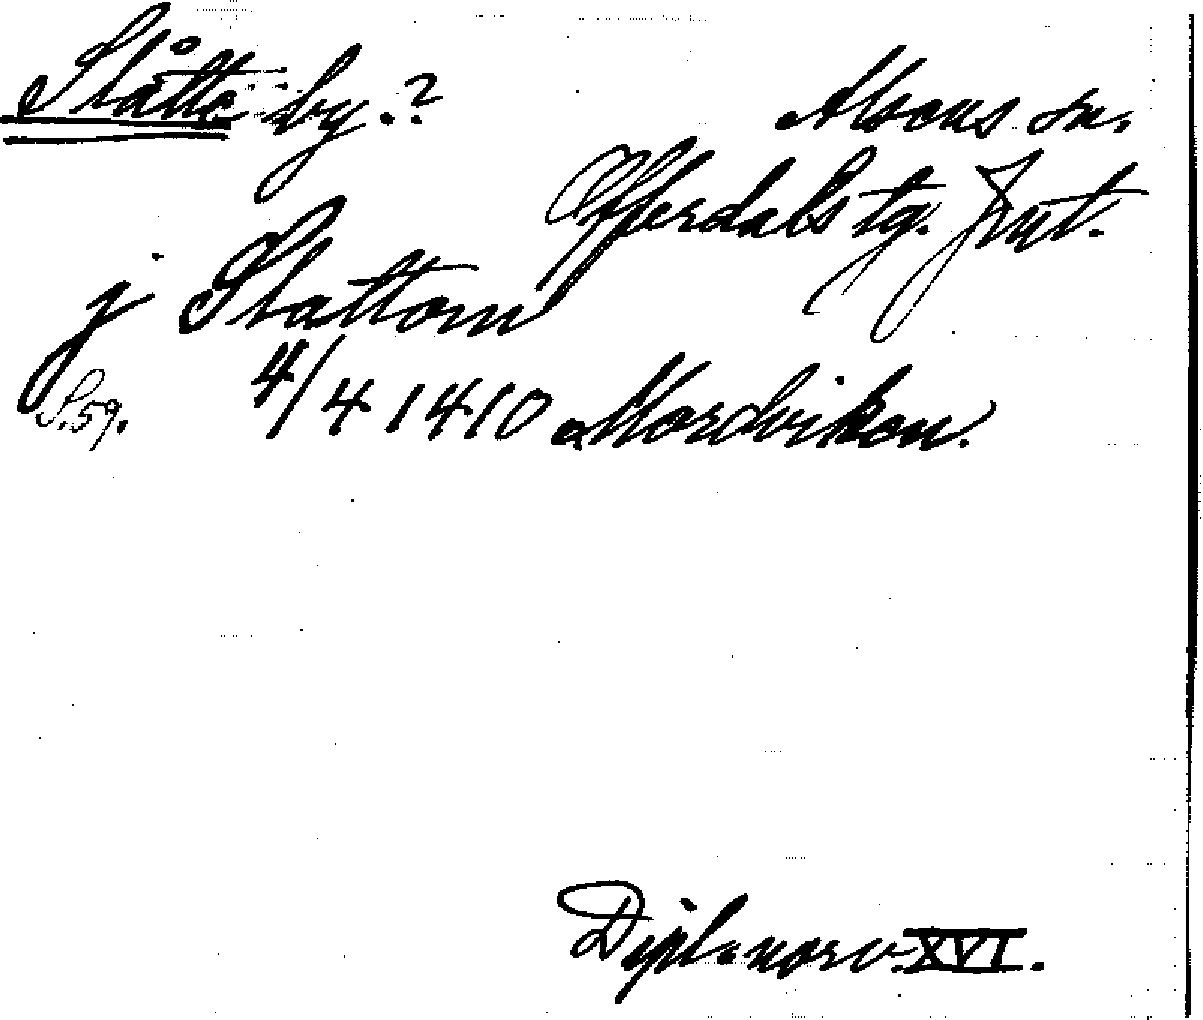 Slåtte by.?
Alsens sn.
Offerdals tg. Jmt.
j Slattom
S.59. 4/4 1410 Mordviken.
Dipl. norv. XVI.